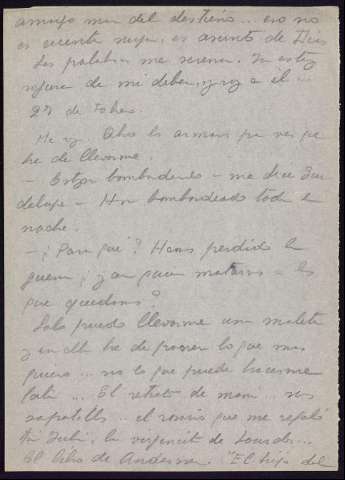 amigo mas del destino... eso no
es cuenta suya, es asunto de Dios
Las palabras me serenan. Yo estoy
segura de mi deber, y voy a el
27 de
Me voy. Abro los armarios para ver que
he de llevarme.
— Están bombardeando — me dice
debajo — Han bombardeado toda la
noche.
— ¿Para qué? Hemos perdido la
guerra ¿y aun quieren matarnos a los
que quedamos?
Solo puedo llevarme una maleta
y en ella he de poner lo que mas
quiero... no lo que puede hacerme
falta... El retrato de mama... sus
zapatillas.. el rosario que me regaló
tia Juli, la virgencita de Lourdes...
El libro de Andersen. "El hijo del